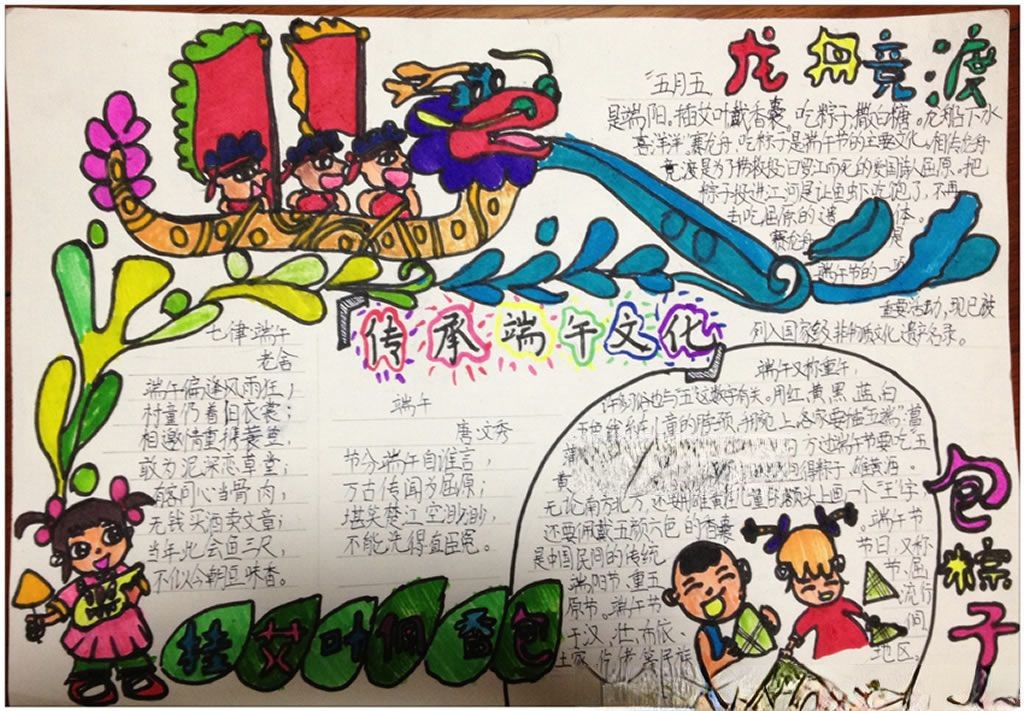 龙舟竞渡
"五月五,
是端阳。插艾叶戴香囊,吃粽子撒白糖。龙船下水
喜洋洋"赛龙舟,吃粽子是端午节的主要文化。相传龙舟
竞渡是为了捞救投汨罗江而死的爱国诗人屈原。把
粽子投进江河是让鱼虾吃饱了,不再
去吃屈原的遗体。
赛龙舟是
端午节的一项
重要活动,现已被
列入国家级非物质文化遗产名录。
传承端午文化
七律·端午
老舍
端午偏逢风雨狂;
村童仍着旧衣裳;
相邀情重
敢为泥深恋草堂;
有客同心当骨肉,
无钱买酒卖文章;
当年此会鱼三尺,
不似今朝豆味香。
端午
唐·文秀
节分端午自谁言,
万古传闻为屈原;
堪笑楚江空渺渺,
不能洗得直臣冤。
端午又称重午,
许多习俗也与"五"这数字有关。用红、黄、黑、蓝、白
儿童的脖颈、手腕上,各家要插"五端":菖
蒲 方过端节要吃五
黄 粽子、雄黄酒。
无论南方北方,还要用雄黄在儿童的额头上画一个"王"字,
还要佩戴五颜六色的香囊。端午节
是中国民间的传统节日,又称
端阳节、重五节、屈
原节。端午节流行
于汉、壮、布依、侗、
土家、仡佬等民族地区。
包粽子
挂艾叶佩香包